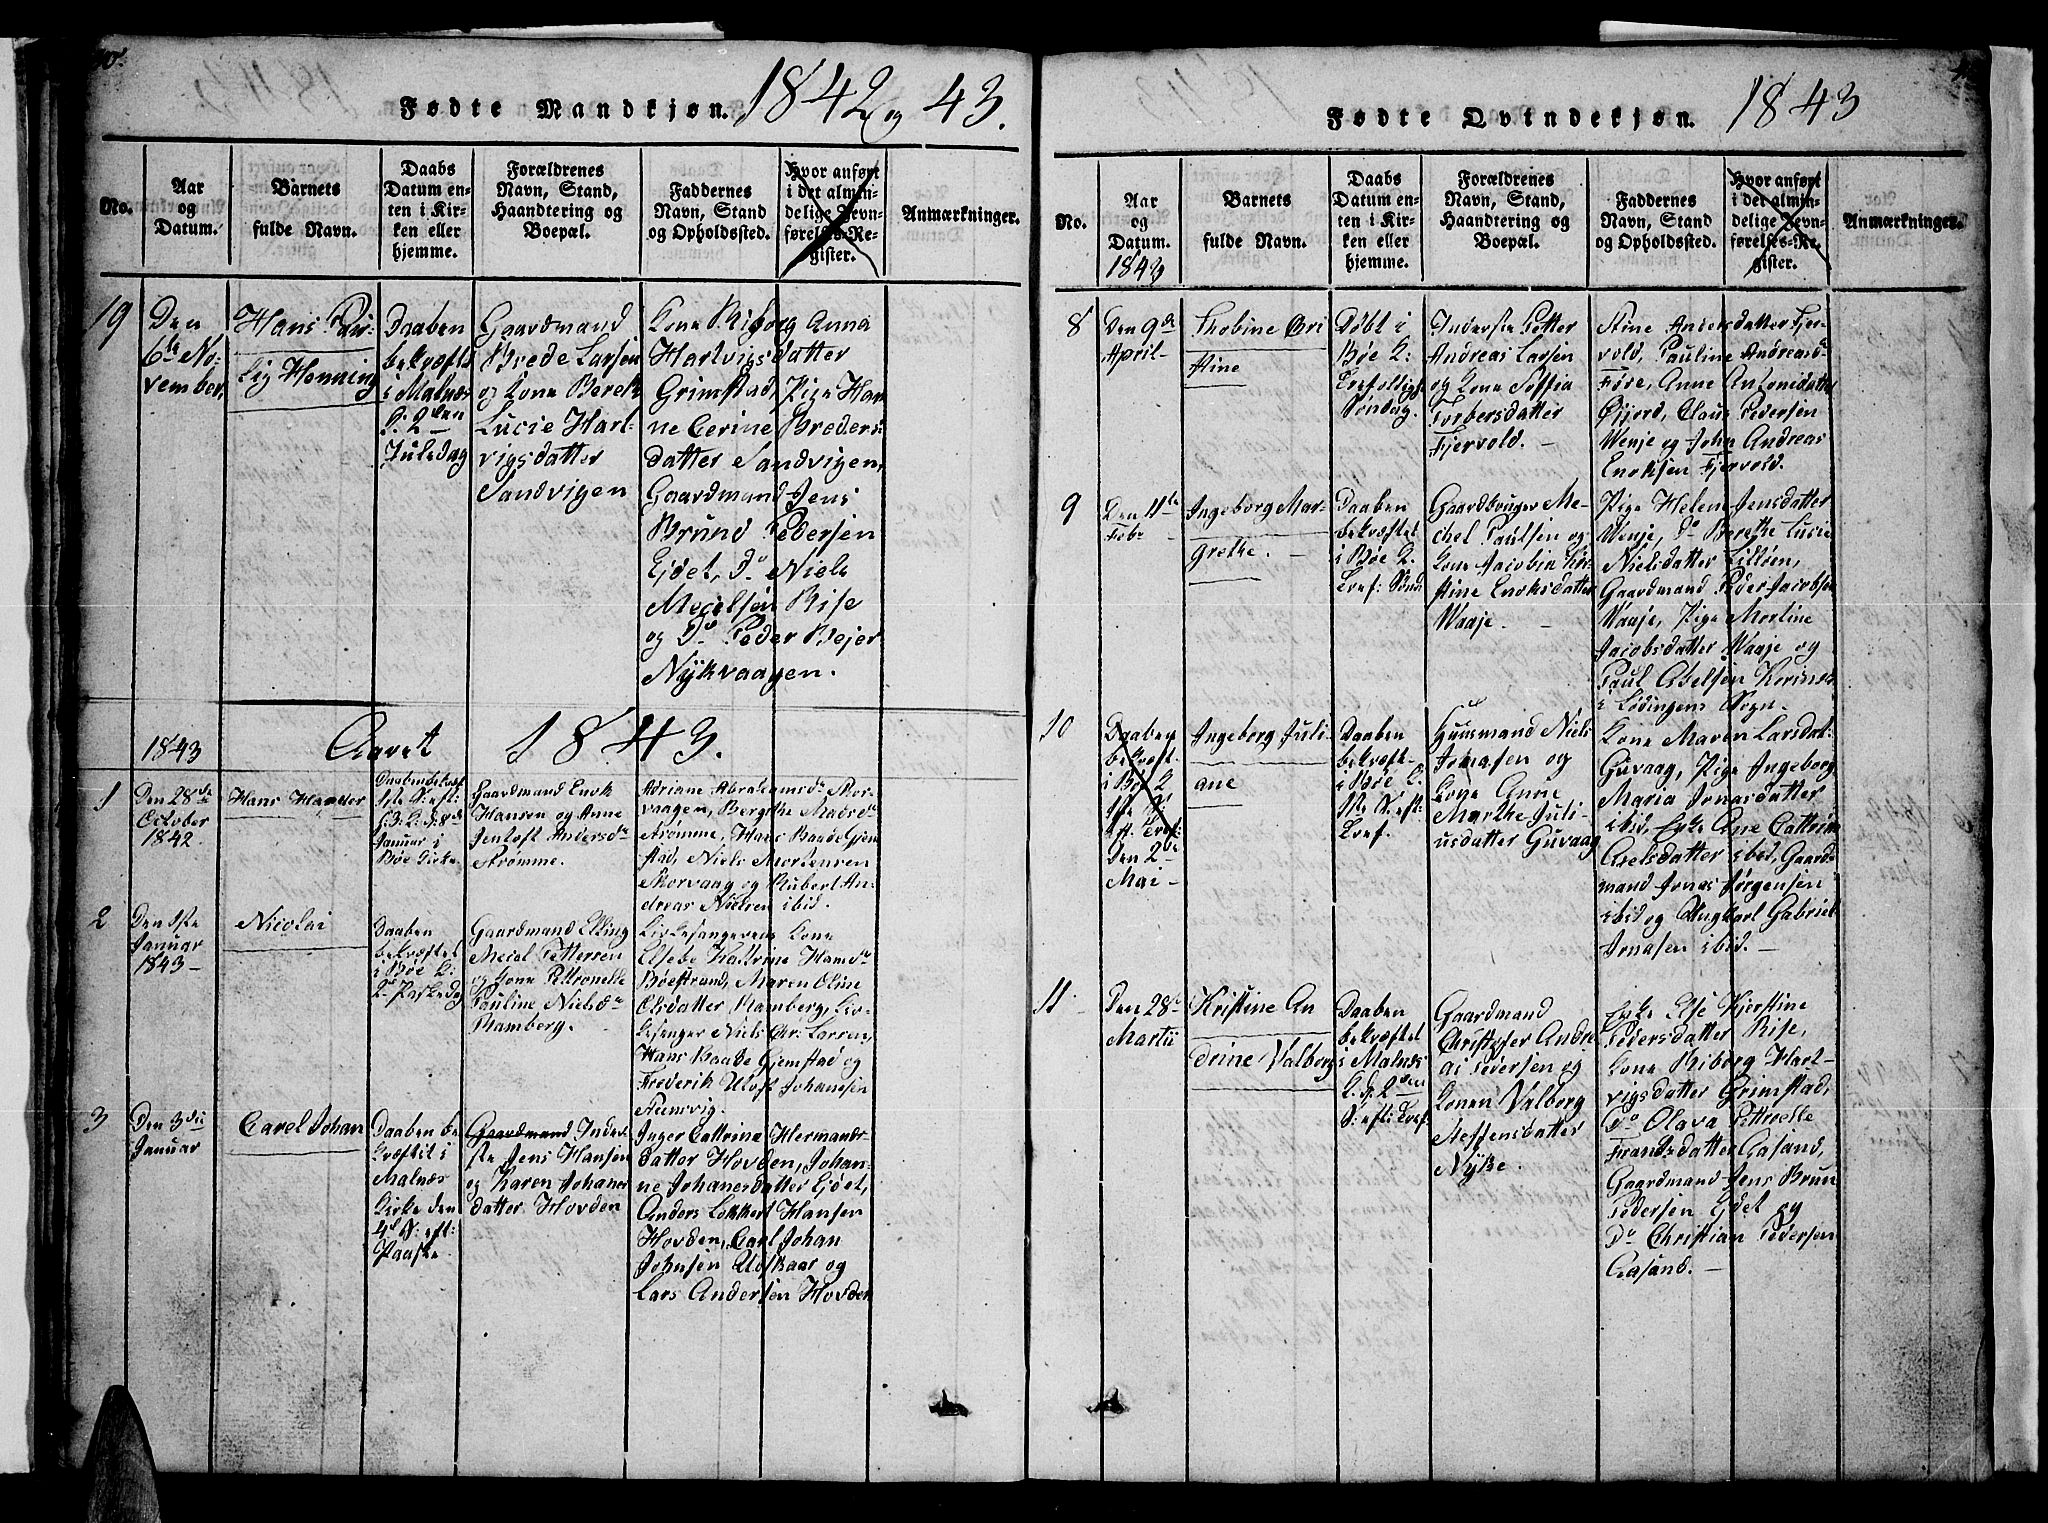 Fødte Mandkjøn. 1842 og 43.
No.
Aar
og
Datum.
Barnets
fulde Navn.
Daabs
Datum en-
ten i Kir-
ken eller
hjemme.
Forældrenes
Navn, Stand,
Haandtering og
Boepæl.
Faddernes
Navn, Stand
og Opholdssted.
Hvor anført
i det almin-
delige Jevn-
førelses-Re-
gister.
Anmærkninger.
19
Den
6te No-
vember,
Hans
lig Henning
Daaben
bekræftet
i Malnæs
K: 2den
Juledag
Gaardmand
Brede Larsen
og Kone Bereth
Lucie Hart-
vigsdatter
Sandvigen
Kone Riborg Anna
Hartvigsdatter
Grimstad, Pige Han
ne Cerine Breders-
datter Sandvigen,
Gaardmand Jens
Brund Pedersen
Ejdet, Do Niels
Mecelsen Rise
og Do Peder Bejer
Nykvaagen.
1843
Aaret 1843.
1
Den 28de
October
1842.
Hans Hander
Januar i
Bøe Kirke
Gaardmand Enok
Hansen og Anne
Jentoft Andersdr
Strømme.
Adriane Abrahamsdr Skor-
vaagen, Bergthe Madsdr
Strømme, Hans Baade Gjem-
stad, Niels Mortensen
Skorvaag og Rubert An-
dreas Nielsen ibid.
2
Den 1ste
Januar
1843 –
Nicolai
Daaben
bekræftet
i Bøe K:
2d Paaskedag
Gaardmand Elling
Mecal Pettersen
og Kone Petronelle
Pauline Nielsdr
Ramberg.
Kirkesangerens Kone
Elsebe Kattrine Hansdr
Bøestrand, Maren Oline
Olsdatter Ramberg, Kir-
kesanger Niels Chr. Larsen,
Hans Baade Gjemstad og
Frederik Ulost Johansen
3
Den 3die
Januar
Carel Johan
Daaben be
kræftet i
Malnæs
Kirke den
4de S: eft:
Paaske
Gaardmand Inder-
ste Jens Hansen
og Karen Johans
datter Hovden
Inger Cattrina Hermands-
datter Hovden, Johan-
ne Johanesdatter Ejdet,
Anders Lokkert Hansen
Hovden, Carl Johan
Johnsen Udskaar og
Lars Andersen Hovden
Fødte Qvindekjøn. 1843
No.
Aar
og
Datum.
1843
Barnets
fulde Navn.
Daabs
Datum en-
ten i Kir-
ken eller
hjemme.
Forældrenes
Navn, Stand,
Haandtering og
Boepæl.
Faddernes
Navn, Stand
og Opholdssted.
Hvor anført
i det almin-
delige Jevn-
førelses-Re-
gister.
Anmærkninger.
8
Den 9de
April –
Thobine Cri
stine
Døbt i
Bøe K:
Trefoldigh
Søndag.
Inderste Petter
Andreas Larsen
og Kone Soffia
Torbersdatter
Fjervold. –
Stine Andersdatter Fjer-
vold, Pauline Andreasdr
Føre, Anne Antonsdatter
Øfjord, Claus Pedersen
Wenje og John Andreas
Enoksen Fjervold.
9
Den 11te
Febr –
Ingeborg Mar-
grethe. –
Daaben
bekræftet
i Bøe K.
Tref: Sønd
Gaardbruger Me-
chel Paulsen og
Kone Jacobin Kir-
stine Enoksdatter
Waaje. –
Pige Helene Jensdatter
Wenje, do Berethe Lucie
Nielsdatter Lilløen,
Gaardmand Peder Jacobsen
Waaje, Pige Mortine
Jacobsdatter Waaje og
Paul Abelsen
i Lødingens Sogn.
10
Daaben
bekræft.
i Bøe K
1ste S:
eft. Tref:
Den 2de
Mai –
Ingeborg Juli-
ane
Daaben
bekræft-
i Bøe K.
1ste S: eft:
Tref.
Huusmand Niels
Jonasen og
Kone Anne
Marthe Juli-
usdatter Guvaag
Kone Maren Larsdat-
Guvaag, Pige Ingeborg
Maria Jonasdatter
ibid, Enke Ane Cattrin
Axelsdatter ibid, Gaard-
mand Jonas Jørgensen
ibid og Ungkarl Gabriel
Jonasen ibid. –
11
Den 28de
Martii
Kristine An
drine Valborg
Daaben
bekræftet
i Malnæs
K. d. 2den
S: eft: Tref
Gaardmand
Christofer Andre
as Pedersen og
Konen Valborg
Steffensdatter
Nyke.
Enke Else Kjerstine
Pedersdatter Rise,
Kone Riborg Hart-
vigsdatter Grimstad,
Do Olava Pettrelle
Frandsdatter Aasand,
Gaardmand Jens Brun
Pedersen Ejdet og
Do Christian Pedersen
Aasand. –